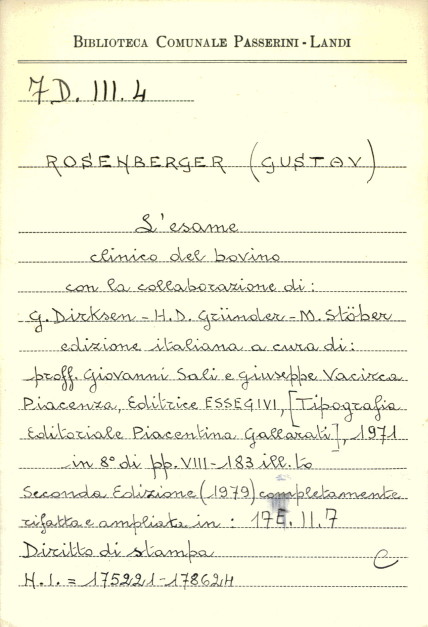 BIBLIOTECA COMUNALE PASSERINI - LANDI
7 D. III. 4
ROSENBERGER (GUSTAV)
L'esame
clinico del bovino
con la collaborazione di:
G. Dirksen - H.D. Gründer - M. Stöber
edizione italiana a cura di:
proff. Giovanni Sali e Giuseppe Vacirca
Piacenza, Editrice ESSEGIVI, [Tipografia
Editoriale Piacentina Gallarati], 1971
in 8° di pp. VIII-183 ill.to
Seconda Edizione (1979) completamente
rifatta e ampliata in: 17E. II. 7
Diritto di stampa
C
N.I. = 175221-178624